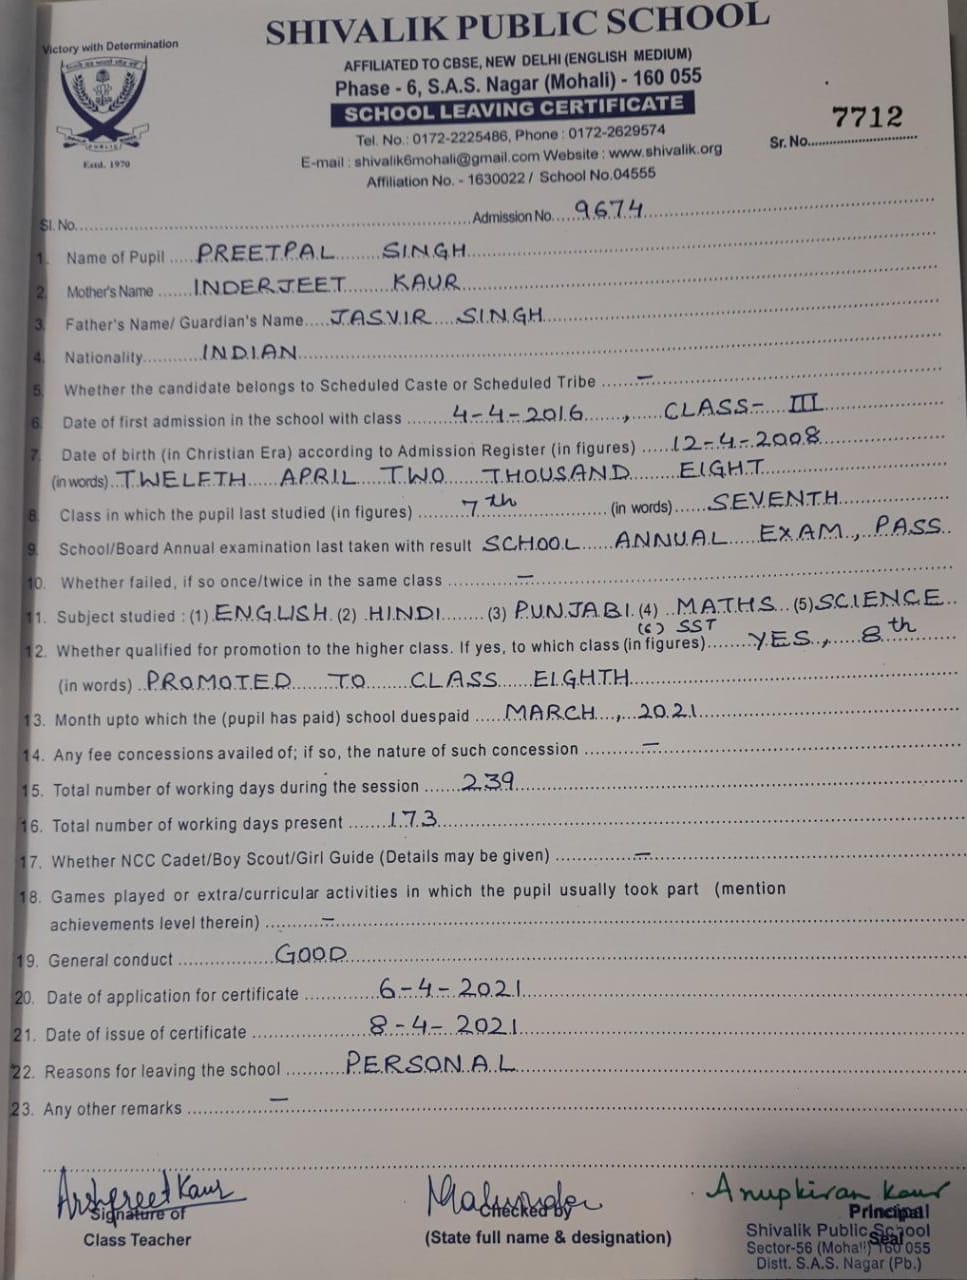 SHIVALIK PUBLIC SCHOOL
Victory with Determination
AFFILIATED TO CBSE, NEW DELHI (ENGLISH MEDIUM)
Phase - 6, S.A.S. Nagar (Mohali) - 160 055
SCHOOL LEAVING CERTIFICATE
Tel. No.: 0172-2225486, Phone : 0172-2629574
E-mail : shivalik6mohali@gmail.com Website : www.shivalik.org
Affiliation No. - 1630022 / School No.04555
PUBLIC
Estd. 1970
7712
Sr. No.
Sl. No. Admission No. 9674
1. Name of Pupil PREETPAL SINGH
2. Mother's Name INDERJEET KAUR
3. Father's Name/ Guardian's Name JASVIR SINGH
4. Nationality INDIAN
5. Whether the candidate belongs to Scheduled Caste or Scheduled Tribe —
6. Date of first admission in the school with class 4-4-2016, CLASS- III
7. Date of birth (in Christian Era) according to Admission Register (in figures) 12-4-2008
(in words) TWELFTH APRIL TWO THOUSAND EIGHT
8. Class in which the pupil last studied (in figures) 7th (in words) SEVENTH
9. School/Board Annual examination last taken with result SCHOOL ANNUAL EXAM, PASS
10. Whether failed, if so once/twice in the same class —
11. Subject studied : (1) ENGLISH (2) HINDI (3) PUNJABI (4) MATHS (5) SCIENCE
(6) SST
12. Whether qualified for promotion to the higher class. If yes, to which class (in figures) YES, 8th
(in words) PROMOTED TO CLASS EIGHTH
13. Month upto which the (pupil has paid) school duespaid MARCH, 2021
14. Any fee concessions availed of; if so, the nature of such concession —
15. Total number of working days during the session 239
16. Total number of working days present 173
17. Whether NCC Cadet/Boy Scout/Girl Guide (Details may be given) —
18. Games played or extra/curricular activities in which the pupil usually took part (mention
achievements level therein) —
19. General conduct GOOD
20. Date of application for certificate 6-4-2021
21. Date of issue of certificate 8-4-2021
22. Reasons for leaving the school PERSONAL
23. Any other remarks —
Arshpreet Kaur
Signature of
Class Teacher
Checked by
(State full name & designation)
Anupkiran Kaur
Principal
Seal
Shivalik Public School
Sector-56 (Mohali) 160 055
Distt. S.A.S. Nagar (Pb.)